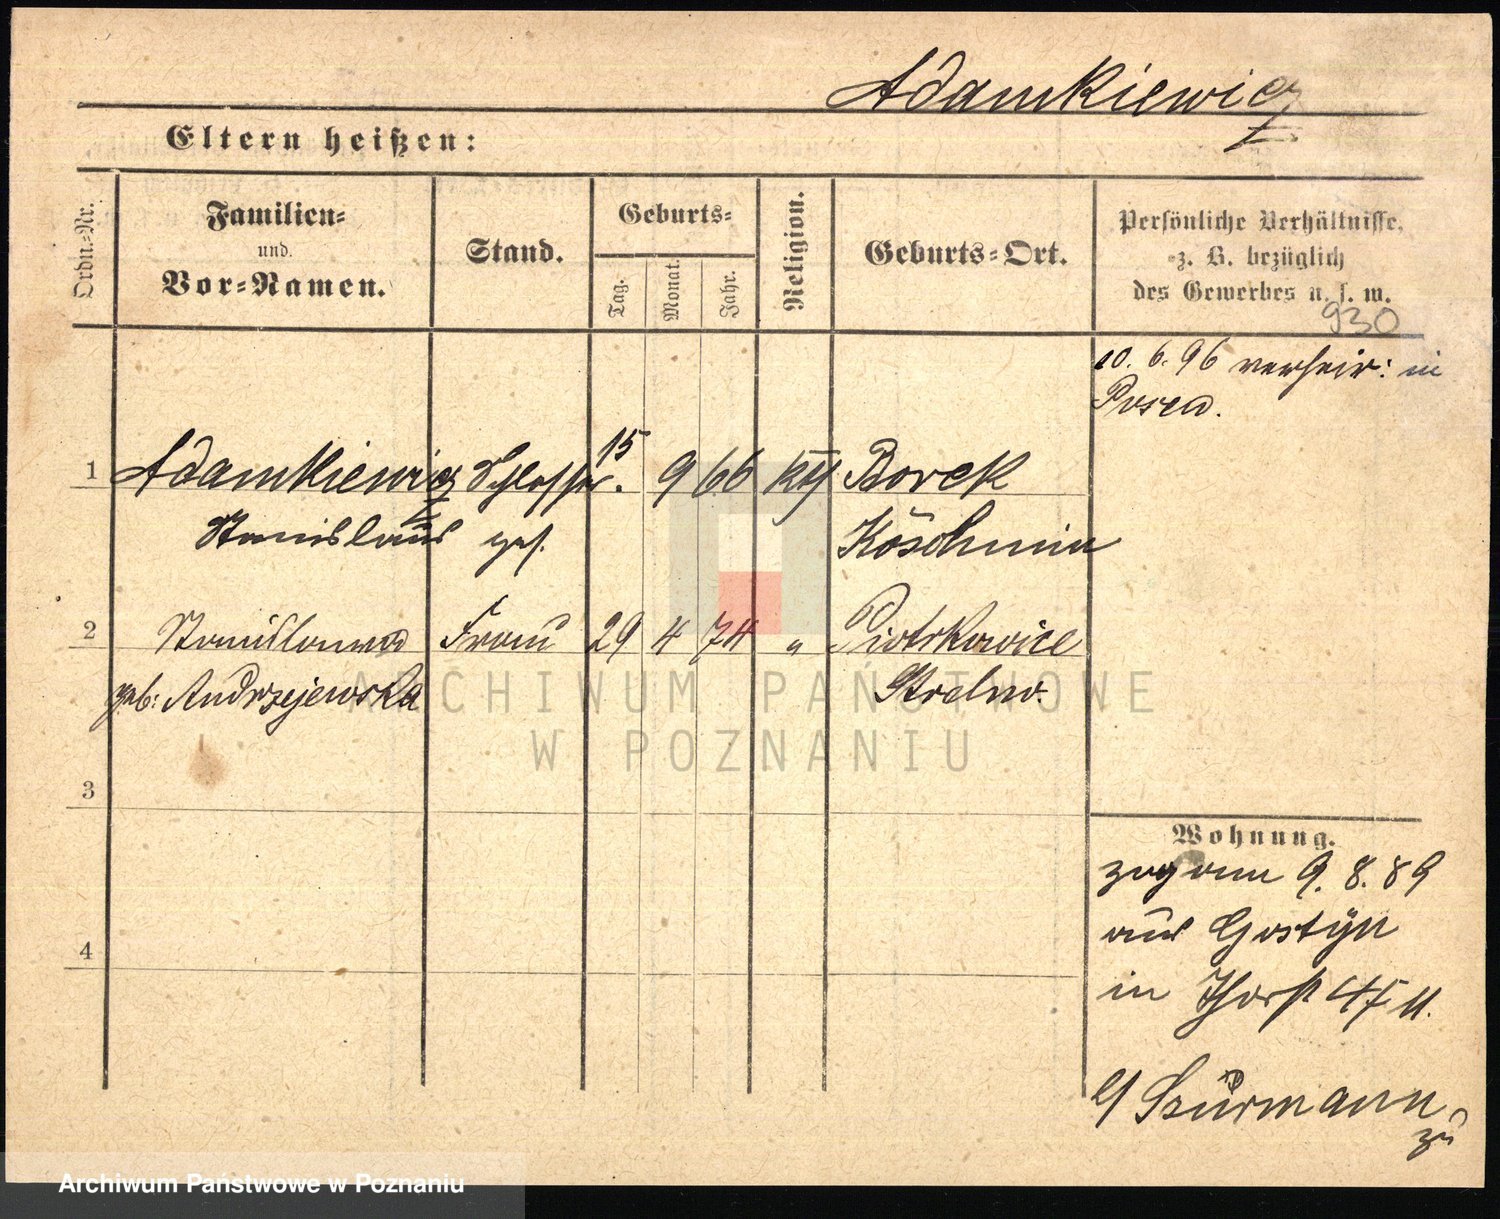 Adamkiewicz
Eltern heißen:
Ordn.-Nr.
Familien-
und
Vor-Namen.
Stand.
Geburts-
Tag.
Monat.
Jahr.
Religion.
Geburts-Ort.
Persönliche Verhältnisse,
z. B. bezüglich
des Gewerbes u. s. w.
930
10. 6. 96 verheir: in
Posen.
1 Adamkiewicz Schlosser. 15 9 66 kth Borek
Stanislaus ges. Koschmin
2 Stanislawa Frau 29 4 74 " Piotrkowice
geb: Andrzejewska Strelno.
3
4
Wohnung.
zog am 9. 8. 89
aus Gostyn
in Thorst 45 u.
b/ Szürmann
zu
ARCHIWUM PAŃSTWOWE
W POZNANIU
Archiwum Państwowe w Poznaniu